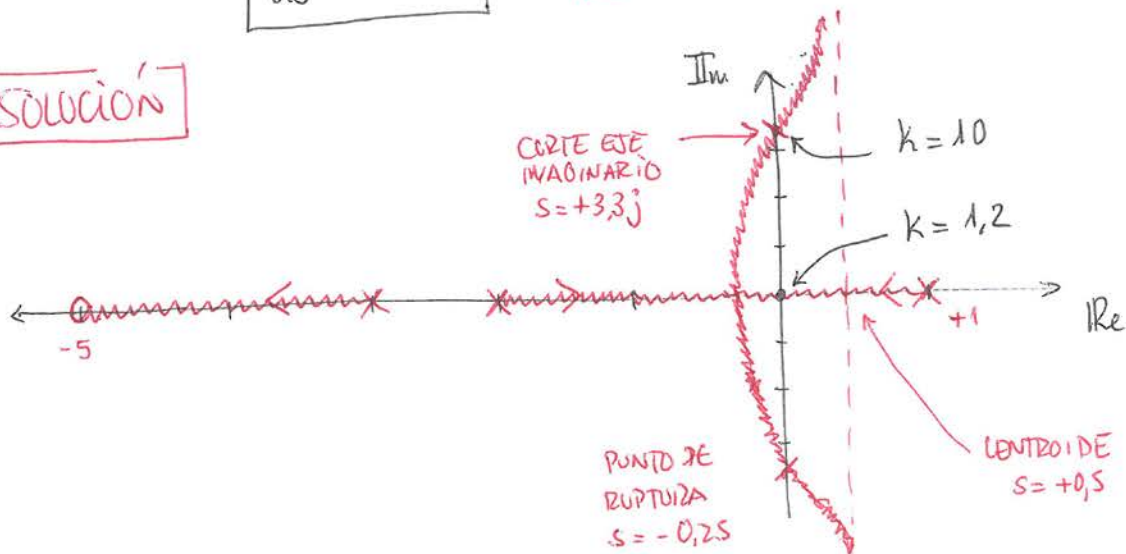 SOLUCIÓN
IIm
CORTE EJE
IMAGINARIO
s=+3,3j
k=10
k=1,2
-5
+1
IRe
PUNTO DE
RUPTURA
s=-0,25
CENTROIDE
s=+0,5